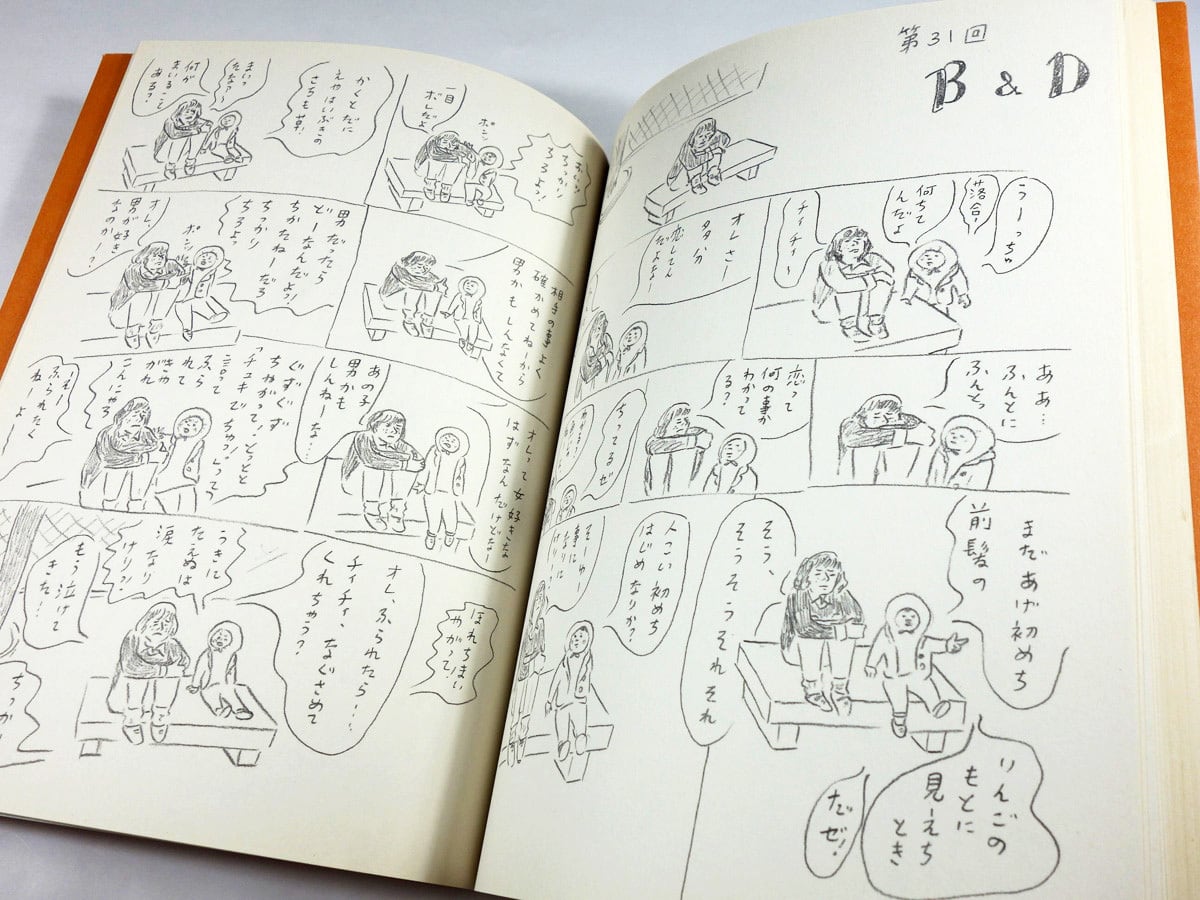 第31回
B & D
うーっちゅ
落合!
何ちて
んだよ
チィチィ〜
オレさー
多分
恋してん
だよな!
ああ…
ふんとに
ふんとっ
恋って
何の事か
わかって
る?
ちってるぜ
まだあげ初めち
前髪の
りんごの
もとに
見ーえち
とき
だぜ!
そう、
そうそうそれそれ
人こい初めち
はじめなりか?
そーゆ
事に
なりに
けり
一目
ボレだよ
ポンッ
かくとだに
えやはいぶきの
さちも草!
まいっ
たな?〜
何が
まいること
ある?
相手の事よく
確かめてねーから
男かもしんなくて
男だったら
どーなんだよっ!
ちかたねーだろ
ちっかり
ちろよっ
ポンッ
オレ、
男が好き
なのか!?
オレって女好きな
はずなんだけどなー
あの子
男かも
しんねーな…
ぐずぐず
ちゃがって、とっとと
「チュキでちゅっ」って
言って
ふら
れて
きや
がれ
こんにゃろ
えーっ
ふられたく
ねーよー
ほれちまい
やがって!
オレ、ふられたら……
チィチィ、なぐさめて
くれちゃう?
うきに
たえぬは
涙なり
けり?!
もう泣けて
きた…